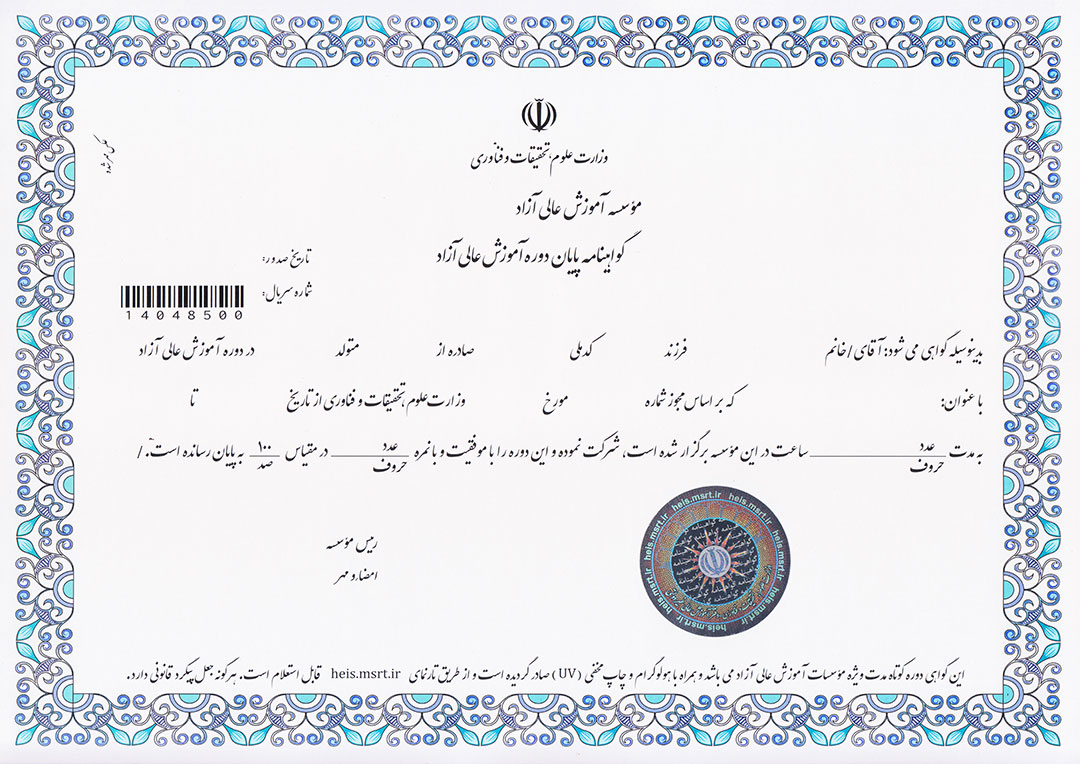 وزارت علوم، تحقیقات و فنآوری
مؤسسه آموزش عالی آزاد
گواهینامه پایان دوره آموزش عالی آزاد
تاریخ صدور:
شماره سریال:
14048500
عکس مهر شده
بدینوسیله گواهی می شود: آقای / خانم فرزند کدملی صادره از متولد در دوره آموزش عالی آزاد
با عنوان: که بر اساس مجوز شماره مورخ وزارت علوم، تحقیقات و فناوری از تاریخ تا
به مدت عدد حروف ساعت در این مؤسسه برگزار شده است، شرکت نموده و این دوره را با موفقیت و با نمره عدد حروف در مقیاس ۱۰۰ صد به پایان رسانده است. /
heis.msrt.ir heis.msrt.ir heis.msrt.ir heis.msrt.ir heis.msrt.ir heis.msrt.ir
رئیس مؤسسه
امضاء و مهر
این گواهی دوره کوتاه مدت ویژه مؤسسات آموزش عالی آزاد می باشد و همراه با هولوگرام و چاپ مخفی (UV) صادر گردیده است و از طریق تارنمای heis.msrt.ir قابل استعلام است. هرگونه جعل پیگرد قانونی دارد.